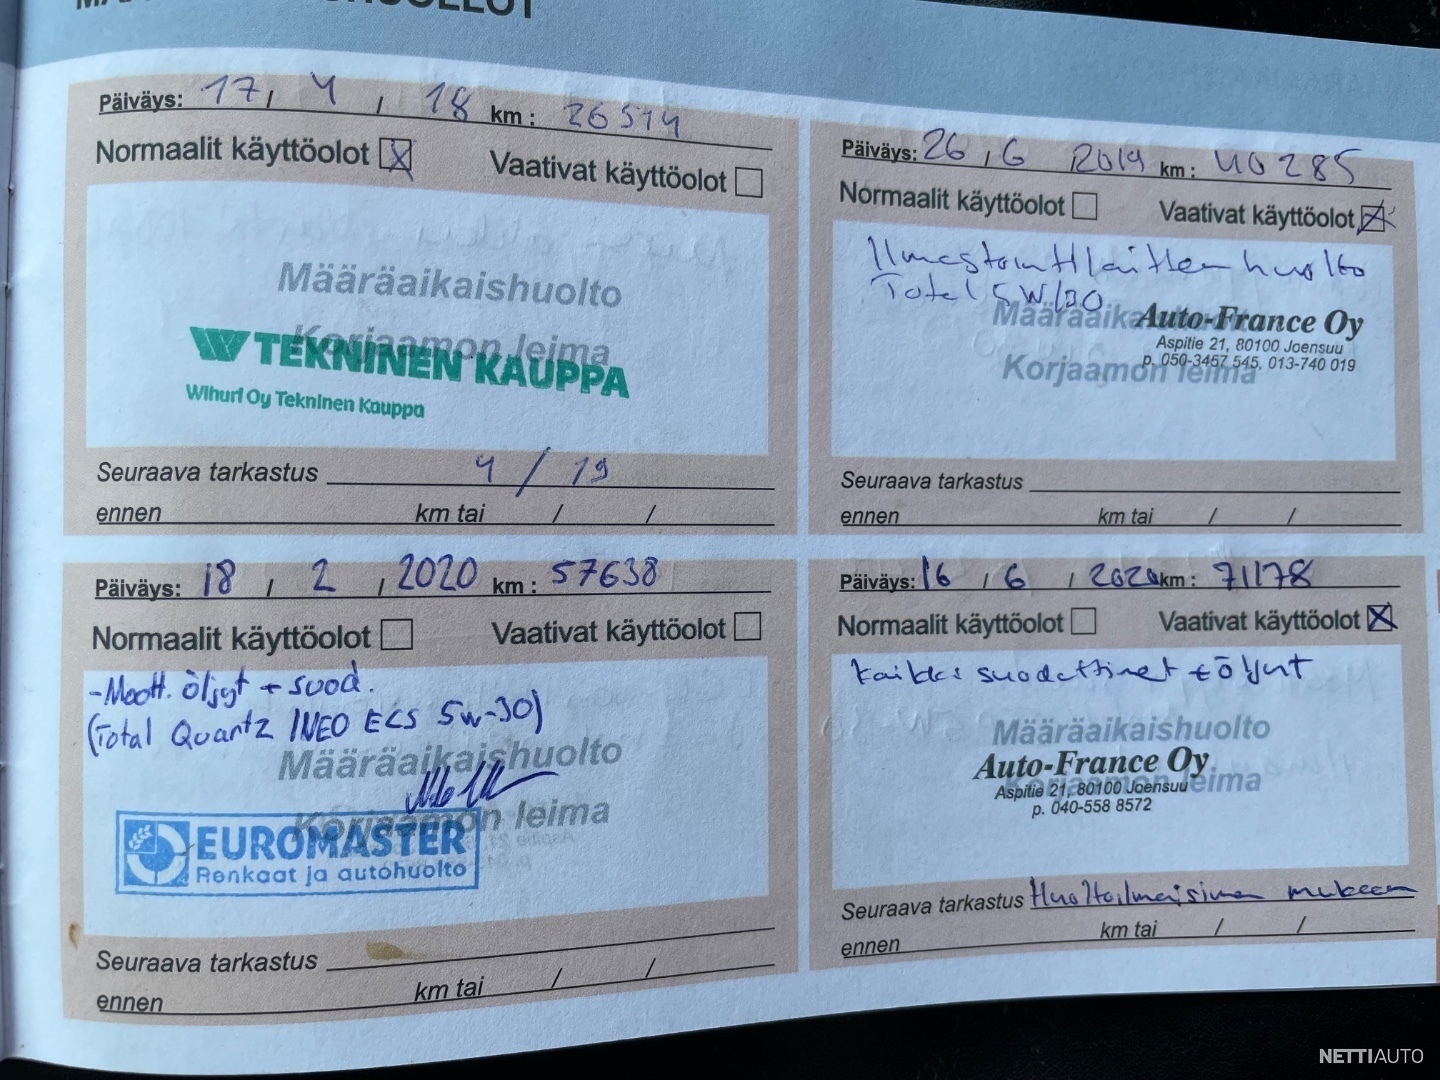 Päiväys: 17, 4, 18 km: 26514
Normaalit käyttöolot ☒ Vaativat käyttöolot ☐
Määräaikaishuolto
Korjaamon leima
TEKNINEN KAUPPA
Wihuri Oy Tekninen Kauppa
Seuraava tarkastus 4 / 19
ennen km tai / /
Päiväys: 26, 6 2019 km: 40285
Normaalit käyttöolot ☐ Vaativat käyttöolot ☒
Ilmastointilaitteen huolto
Total 5W/30
Määräaikaishuolto
Auto-France Oy
Aspitie 21, 80100 Joensuu
p. 050-3457 545, 013-740 019
Korjaamon leima
Seuraava tarkastus
ennen km tai / /
Päiväys: 18, 2, 2020 km: 57638
Normaalit käyttöolot ☐ Vaativat käyttöolot ☐
-Moott. öljyt + suod.
(Total Quartz INEO ECS 5W-30)
Määräaikaishuolto
Korjaamon leima
EUROMASTER
Renkaat ja autohuolto
Seuraava tarkastus
ennen km tai / /
Päiväys: 16, 6, 2020 km: 71178
Normaalit käyttöolot ☐ Vaativat käyttöolot ☒
kaikki suodattimet + öljyt
Määräaikaishuolto
Auto-France Oy
Korjaamon leima
Aspitie 21, 80100 Joensuu
p. 040-558 8572
Seuraava tarkastus Huoltoilmaisimen mukaan
ennen km tai / /
NETTIAUTO